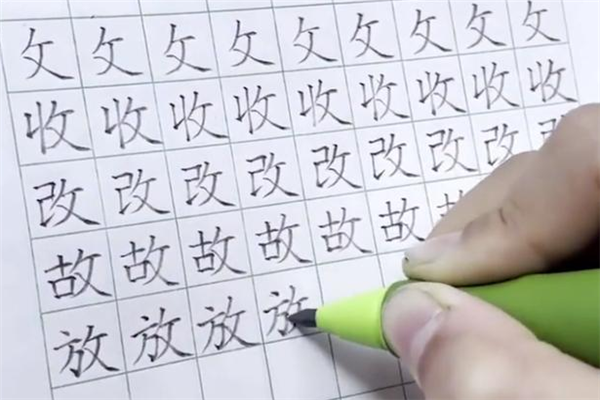 攵攵攵攵攵攵攵攵攵
收收收收收收收收收
改改改改改改改改
故故故故故故
放放放放